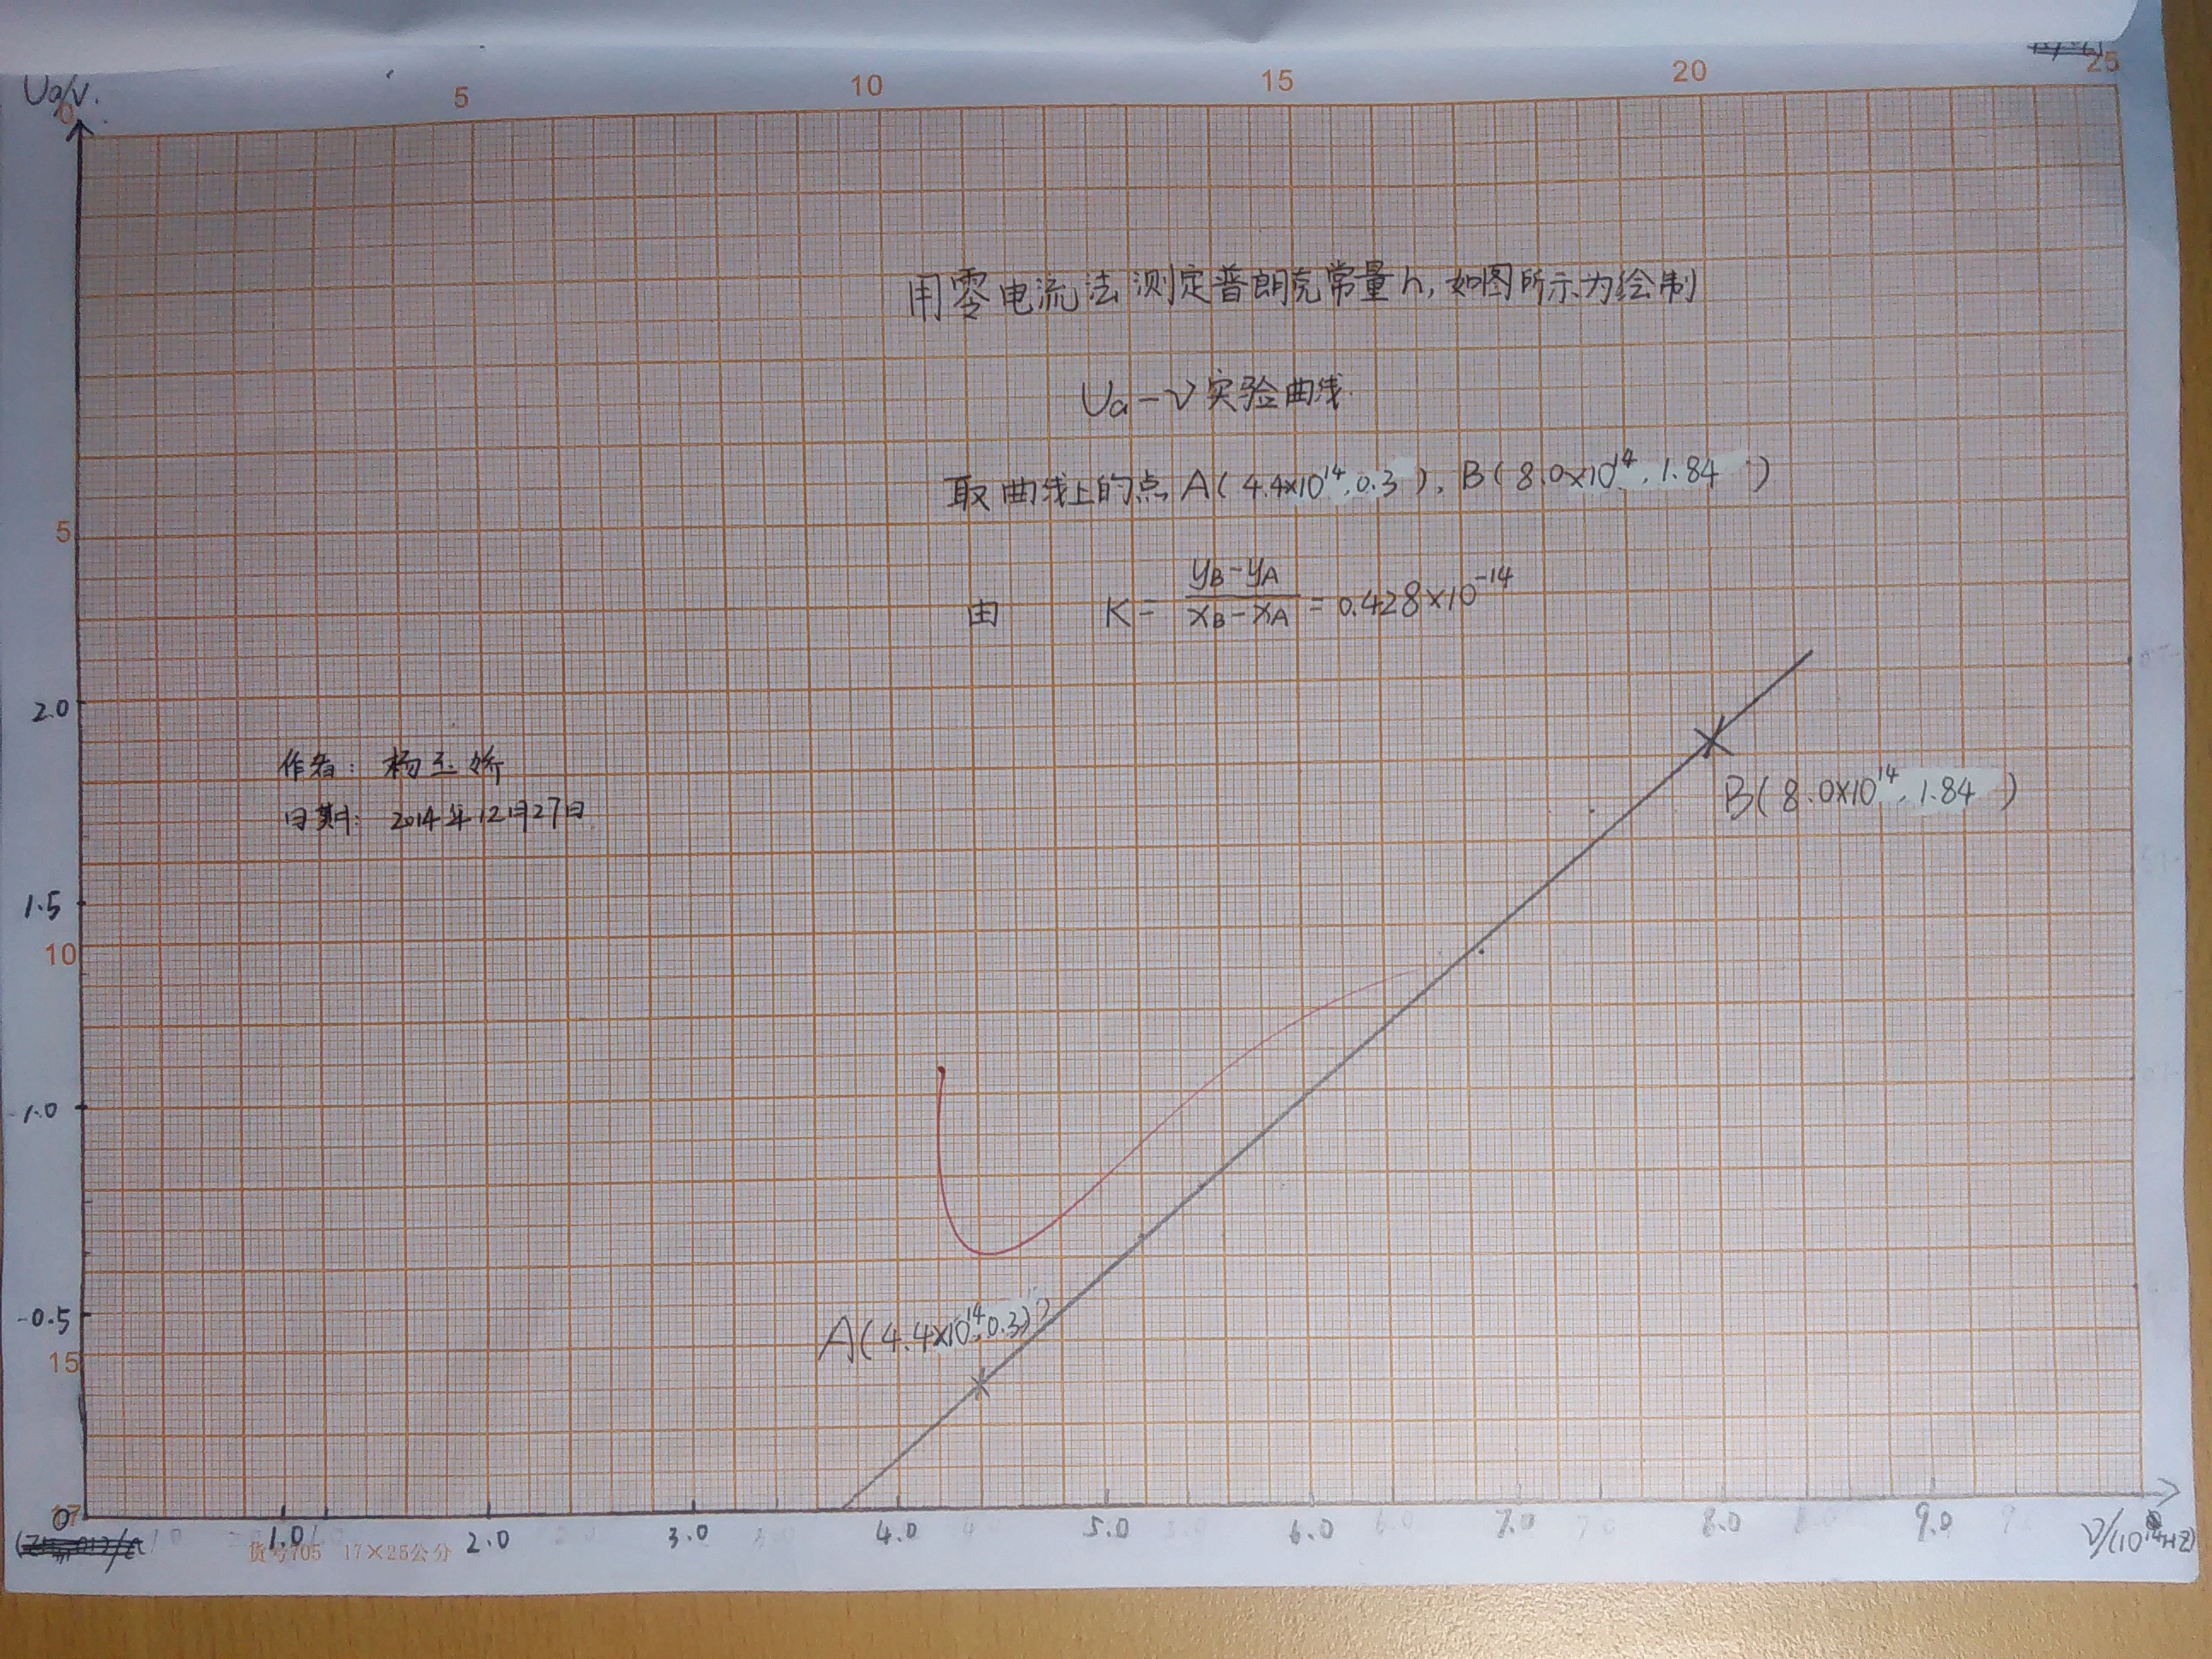 Ua/V.
0 5 10 15 20 25
用零电流法测定普朗克常量h,如图所示为绘制
Ua-ν实验曲线.
取曲线上的点A(4.4×10¹⁴,0.3),B(8.0×10¹⁴,1.84)
5
由 K=(yB-yA)/(xB-xA)=0.428×10⁻¹⁴
2.0
作者:杨玉娇
B(8.0×10¹⁴,1.84)
日期:2014年12月27日
1.5
10
1.0
A(4.4×10¹⁴,0.3)
0.5
15
17
0 1.0 2.0 3.0 4.0 5.0 6.0 7.0 8.0 9.0 ν/(10¹⁴HZ)
货号705 17×25公分